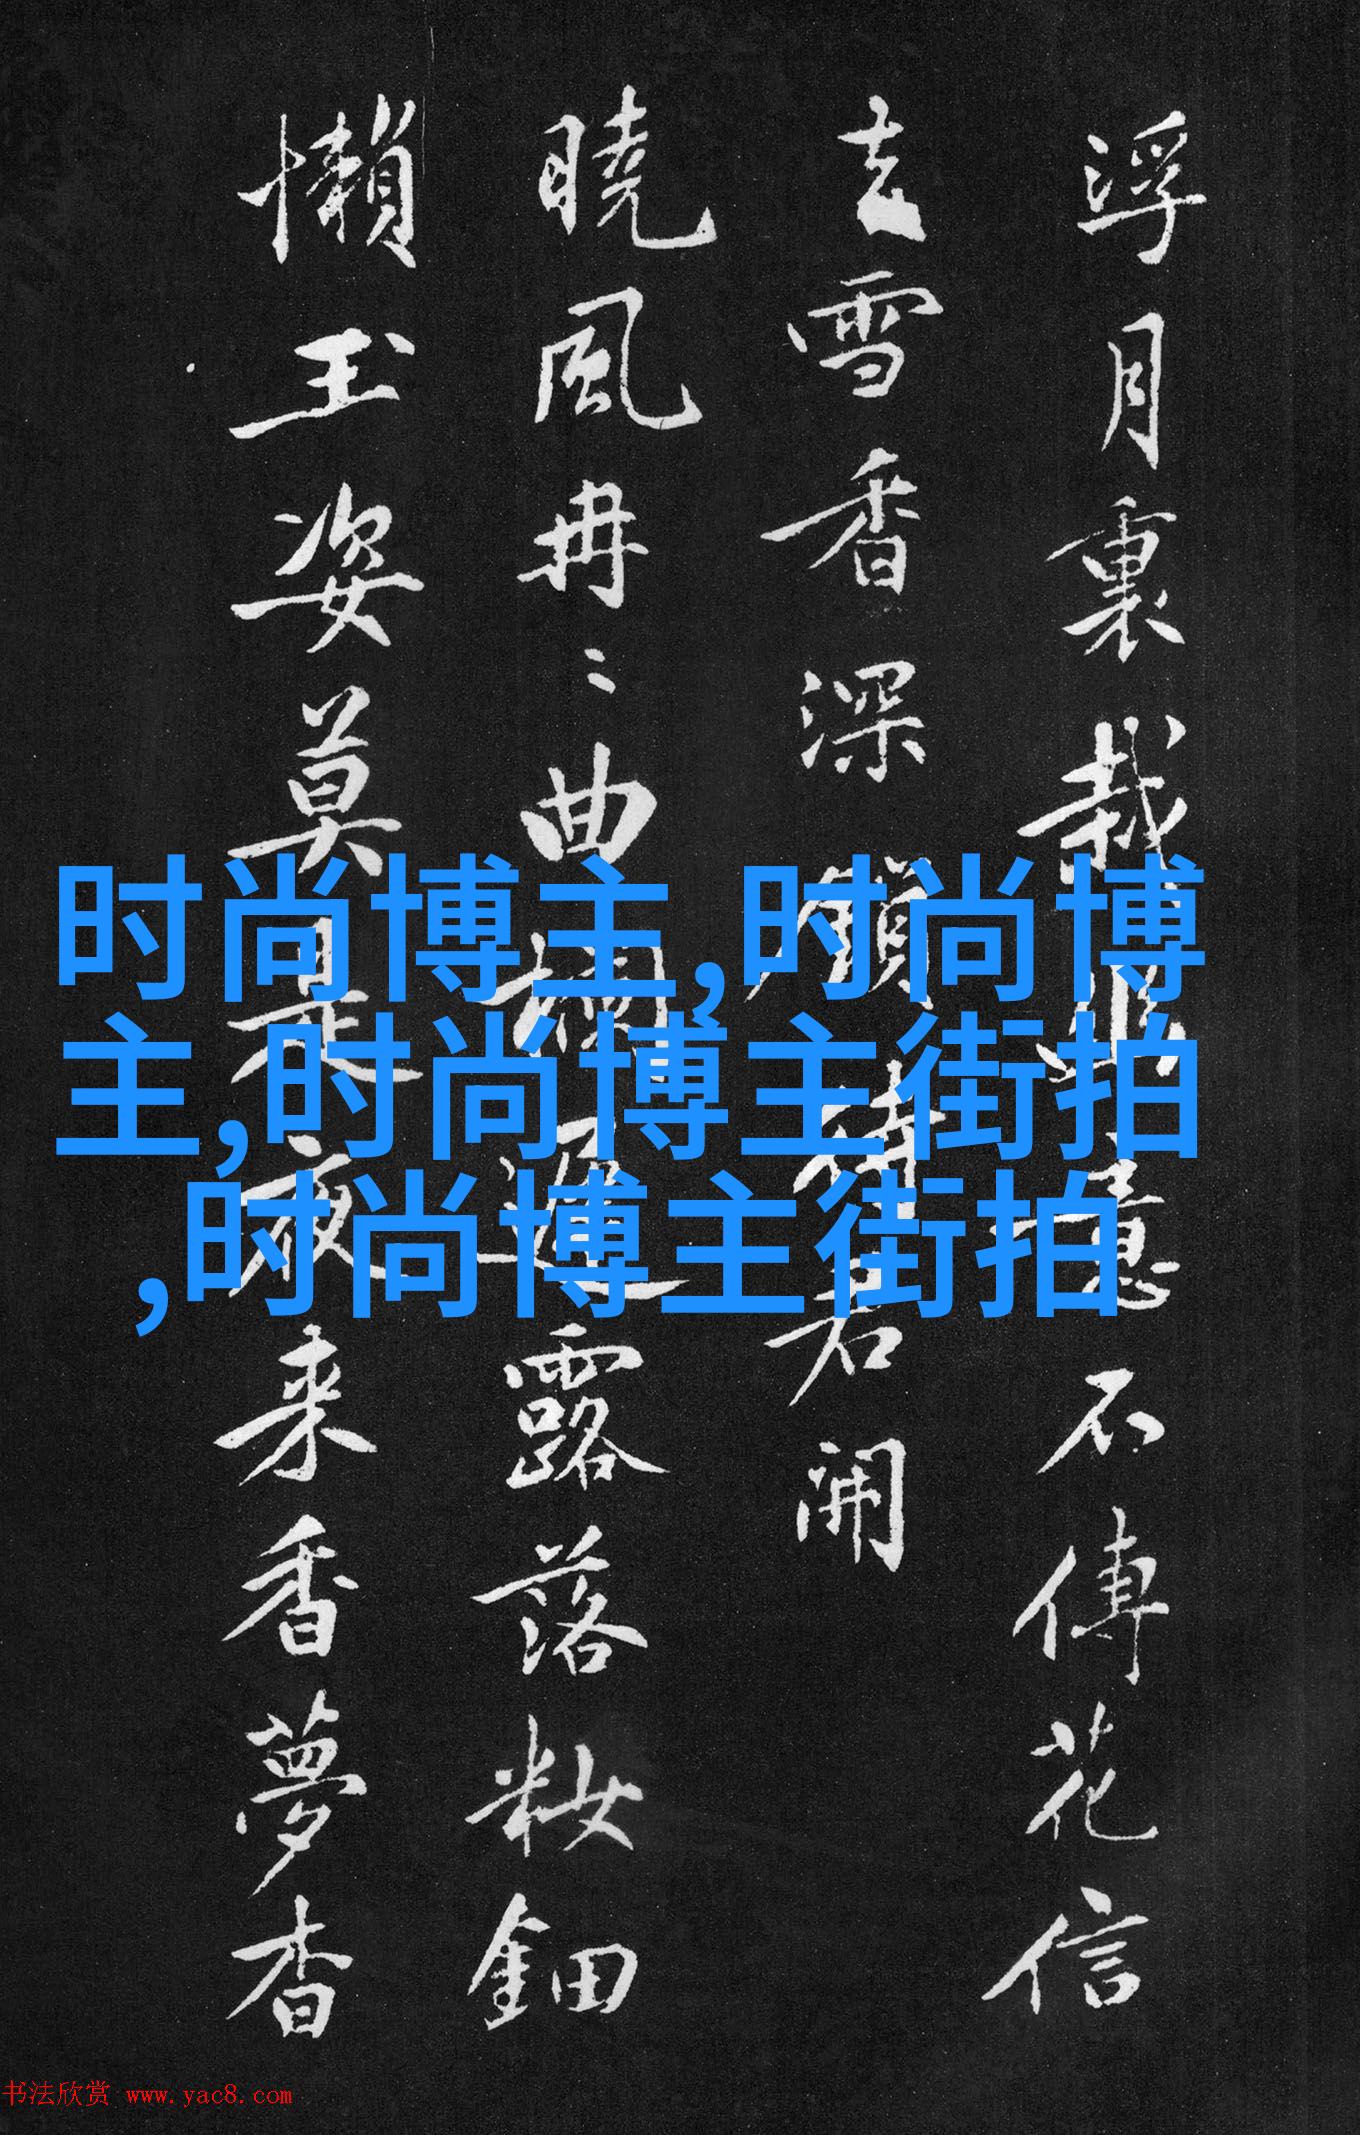 浮月裏栽意不傳花信
去雪香深鎖待君開
曉風冉〻曲欄遲露落粧鈿
懶玉姿莫是夜来香夢杳
时尚博主,时尚博
主,时尚博主街拍
,时尚博主街拍
书法欣赏 www.yac8.com